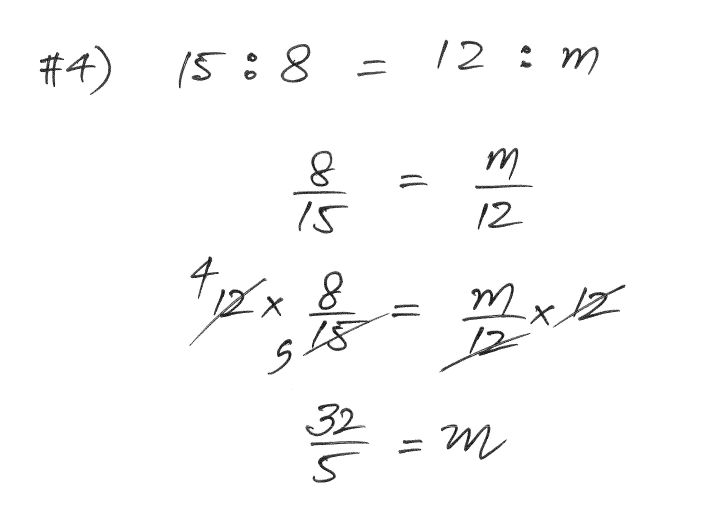 #4) 15 : 8 = 12 : m
8/15 = m/12
4 12 × 8/15 5 = m/12 × 12
32/5 = m